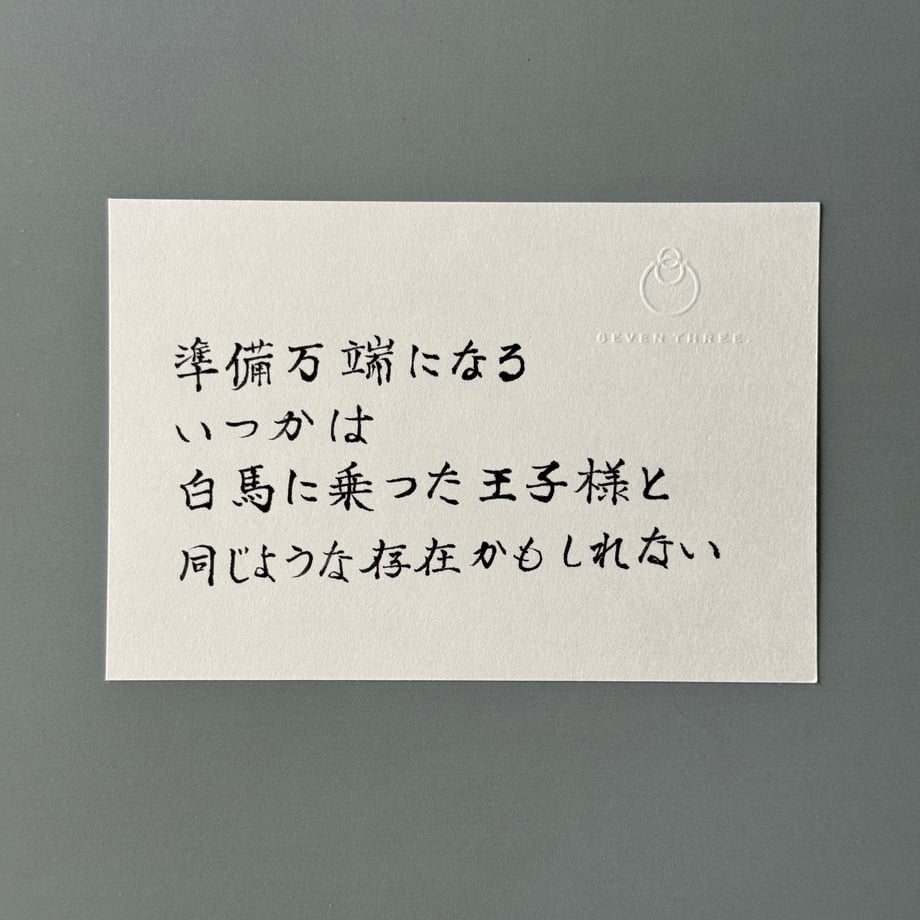 SEVEN THREE
準備万端になる
いつかは
白馬に乗った王子様と
同じような存在かもしれない